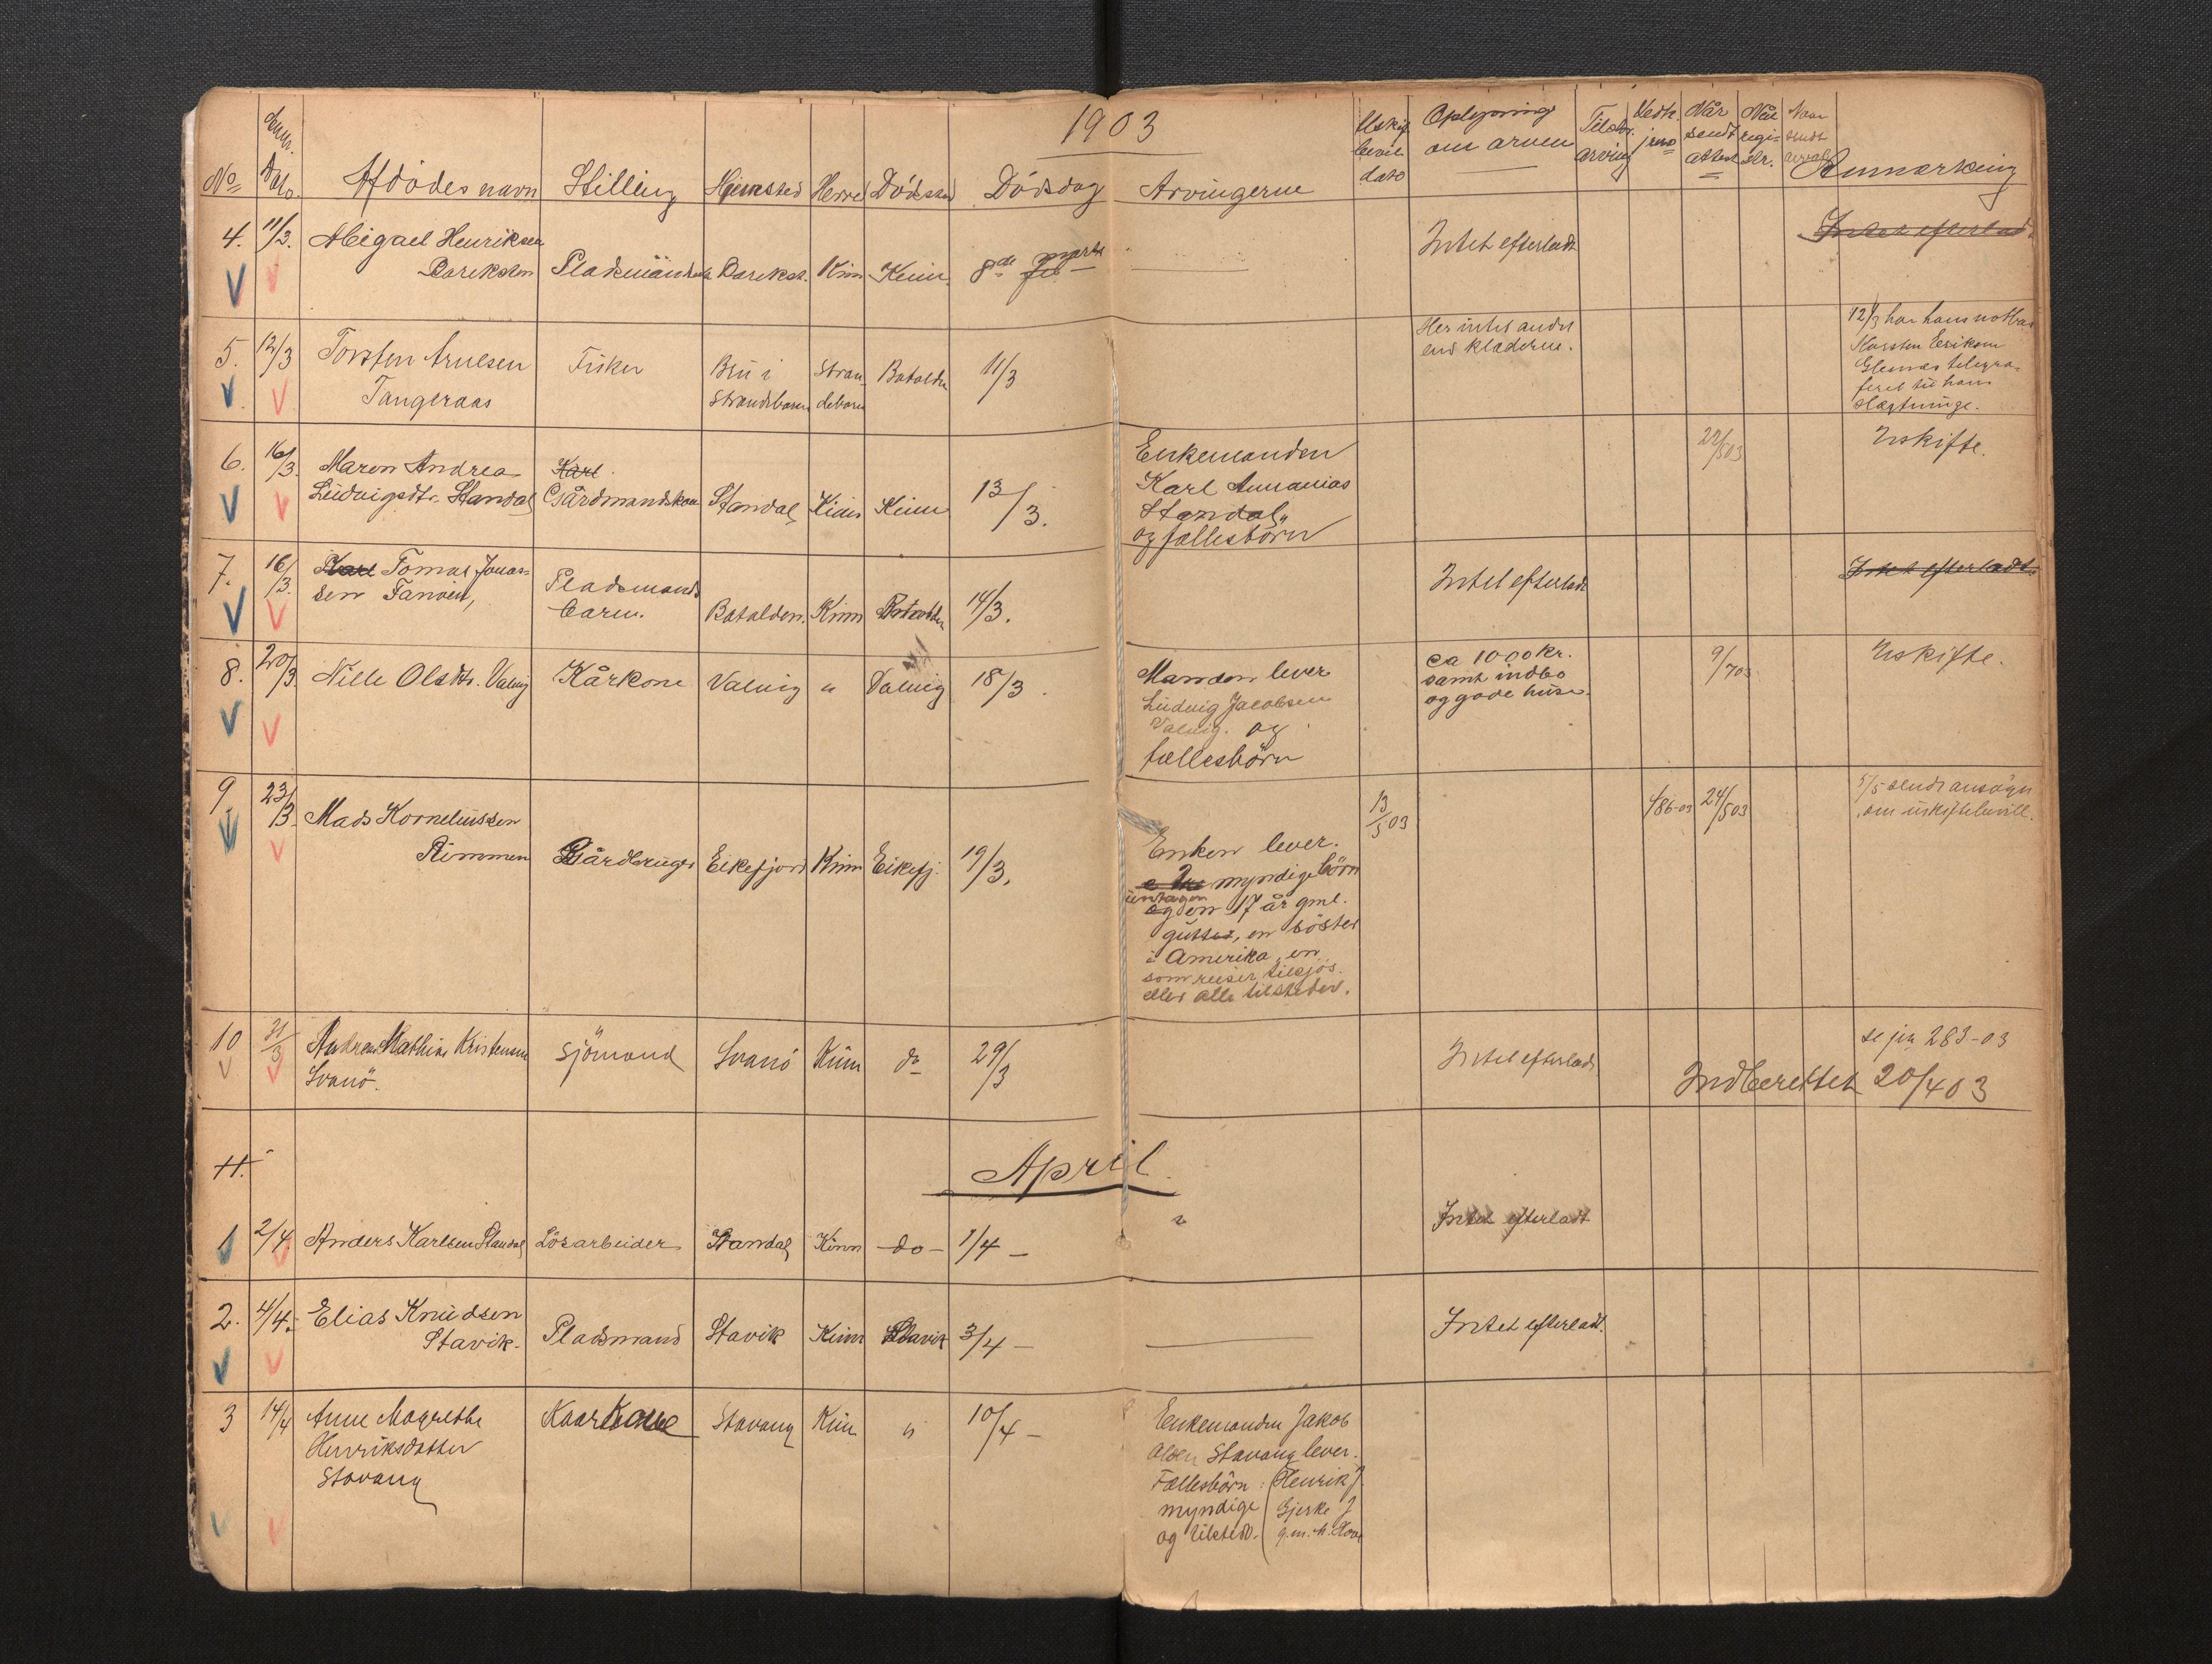 1903
No Dato Afdödes navn Stilling Hjemsted Herred Dödssted Dödsdag Arvingerne Uskif. bevil. dato Oplysning om arven Tilsta. arving Vedk. jrno Når sendt attest Når regi- str. Naar sendt Anmærkning
4. 11/3. Abigael Henriksen
Bareksten Pladsmands Barekst. Kinn Kinn 8de marts
Intet efterladt
Intet efterladt
5. 12/3 Torsten Arnesen
Tangeraas
Fisker
Bru i
Strandebarm
Stran-
debarm
Batalden 11/3
Her intet andet
end klæderne.
12/3 har hans notbas
Karsten Eriksen
telegra-
feret til hans
slægtninge.
6. 16/3. Maren Andrea
Ludvigsdtr. Standal
Karl
Gårdmandskone Standal Kinn Kinn 13/3.
Enkemanden
Karl Annanias
Standal
og fællesbörn
22/5 03
Uskifte.
7. 16/3. Karl Tomas Jonas-
sen Fanöen,
Pladsmands
barn.
Batalden. Kinn Batalden 14/3.
Intet efterladt
Intet efterladt.
8. 20/3. Nille Olsdtr. Valvig Kårkone Valvig " Valvig 18/3.
Manden lever
Ludvig Jacobsen
Valvig. og
fællesbörn
ca 1000 kr.
samt indbo
og gode huse.
9/7 03
Uskifte.
9 23/3. Mads Korneliussen
Rimmen Gårdbruger Eikefjord Kinn Eikefj. 19/3.
Enken lever.
myndige börn
undtagen
og en 17 år gml.
gutter, en söster
i Amerika, en
som reiser tilsjös.
ellers alle tilstede.
13/5 03
486-03 24/5 03
5/5 sendt ansögn
om uskiftebevill.
10 31/3 Andreas Mathias Kristensen
Svanö.
Sjömand Svanö Kinn do 29/3
Intet efterladt
se jrn 283-03
Indberettet 20/4 03
11.
April
1 2/4 Anders Karlsen Standal Lösarbeider Standal Kinn - do - 1/4 -
"
Intet efterladt
2. 4/4. Elias Knudsen
Stavik. Pladsmand Stavik Kinn Stavik 3/4 -
Intet efterladt.
3 14/4 Anne Magrethe
Henriksdatter
Stavang
Kaarkone Stavang Kinn " 10/4 -
Enkemanden Jakob
Olsen Stavang lever.
Fællesbörn: Henrik J.
myndige Gjerke J
og tilsted. g.m. A. Hove